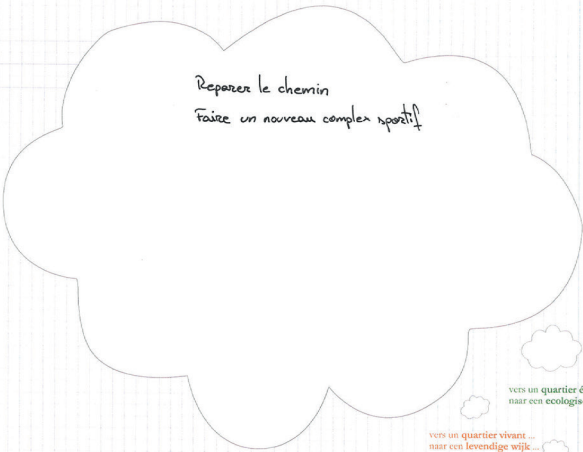 Reparer le chemin
Faire un nouveau complex sportif
vers un quartier é
naar een ecologis
vers un quartier vivant ...
naar een levendige wijk ...